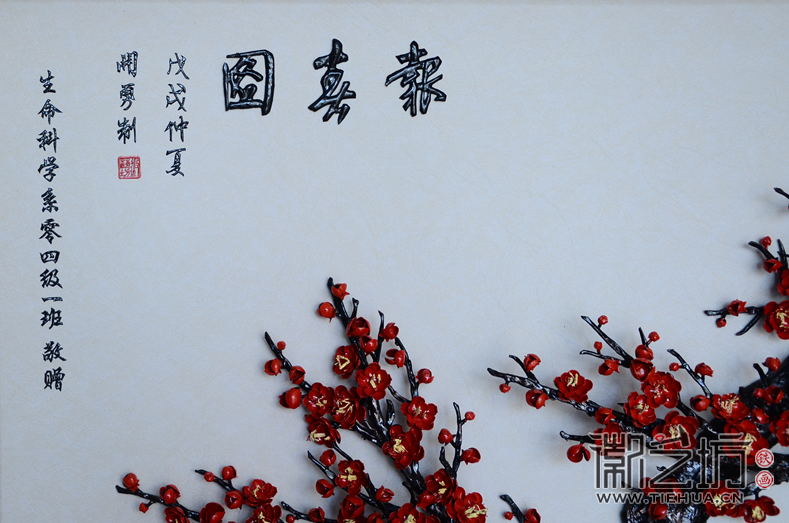 報春圖
戊戌仲夏
開勇制
生命科学系零四级一班敬赠
徽之坊
铁画
WWW.TIEHUA.CN